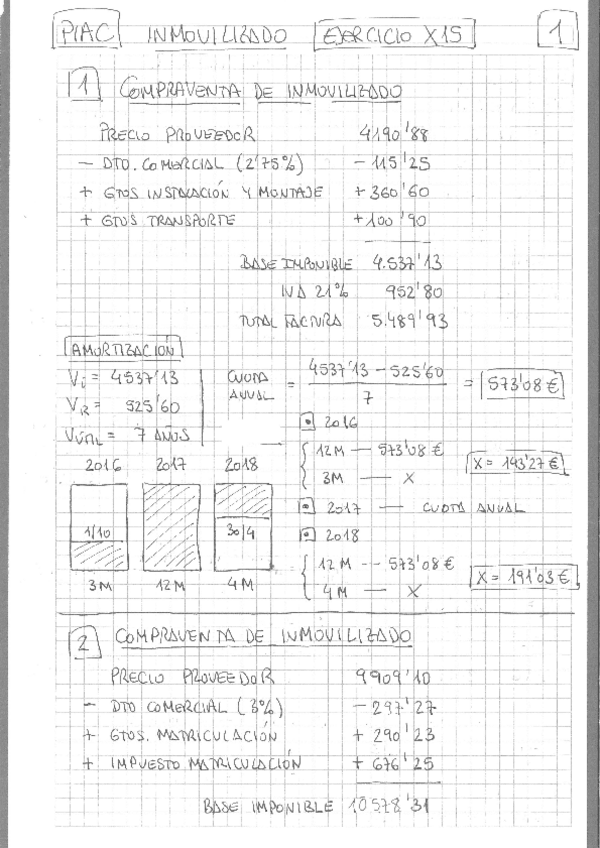 PIAC INMOVILIZADO EJERCICIO X15 1
1 COMPRAVENTA DE INMOVILIZADO
PRECIO PROVEEDOR 4190'88
- DTO. COMERCIAL (2'75%) - 115'25
+ GTOS INSTALACIÓN Y MONTAJE + 360'60
+ GTOS TRANSPORTE + 100'90
BASE IMPONIBLE 4.537'13
IVA 21% 952'80
TOTAL FACTURA 5.489'93
AMORTIZACIÓN
Vi = 4537'13
VR = 525'60
Vútil = 7 AÑOS
CUOTA ANUAL = 4537'13 - 525'60 / 7 = 573'08 €
2016 2017 2018
1/10 30/4
3M 12M 4M
2016
12M — 573'08 €
3M — X
X = 143'27 €
2017 — CUOTA ANUAL
2018
12M -- 573'08 €
4M — X
X = 191'03 €
2 COMPRAVENTA DE INMOVILIZADO
PRECIO PROVEEDOR 9909'10
- DTO COMERCIAL (3%) - 297'27
+ GTOS. MATRICULACIÓN + 290'23
+ IMPUESTO MATRICULACIÓN + 676'25
BASE IMPONIBLE 10578'31